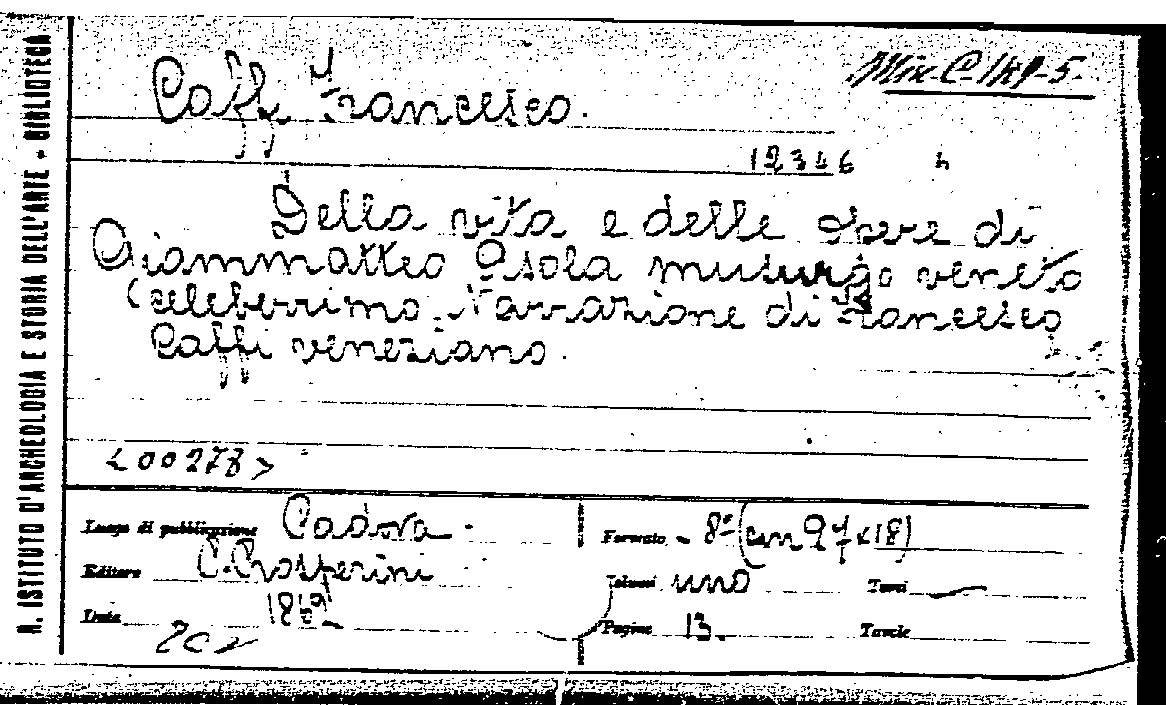 R. ISTITUTO D'ARCHEOLOGIA E STORIA DELL'ARTE - BIBLIOTECA
Caffi Francesco.
Misc C 189-5.
12346 h
Della vita e delle opere di
Giammatteo Asola musurgo veneto
celeberrimo. Narrazione di Francesco
Caffi veneziano.
<00278>
Luogo di pubblicazione Padova -
Editore P. Prosperini
Data 1862
202
Formato - 8° (cm 27x18)
Volumi uno Tomi —
Pagine 13. Tavole